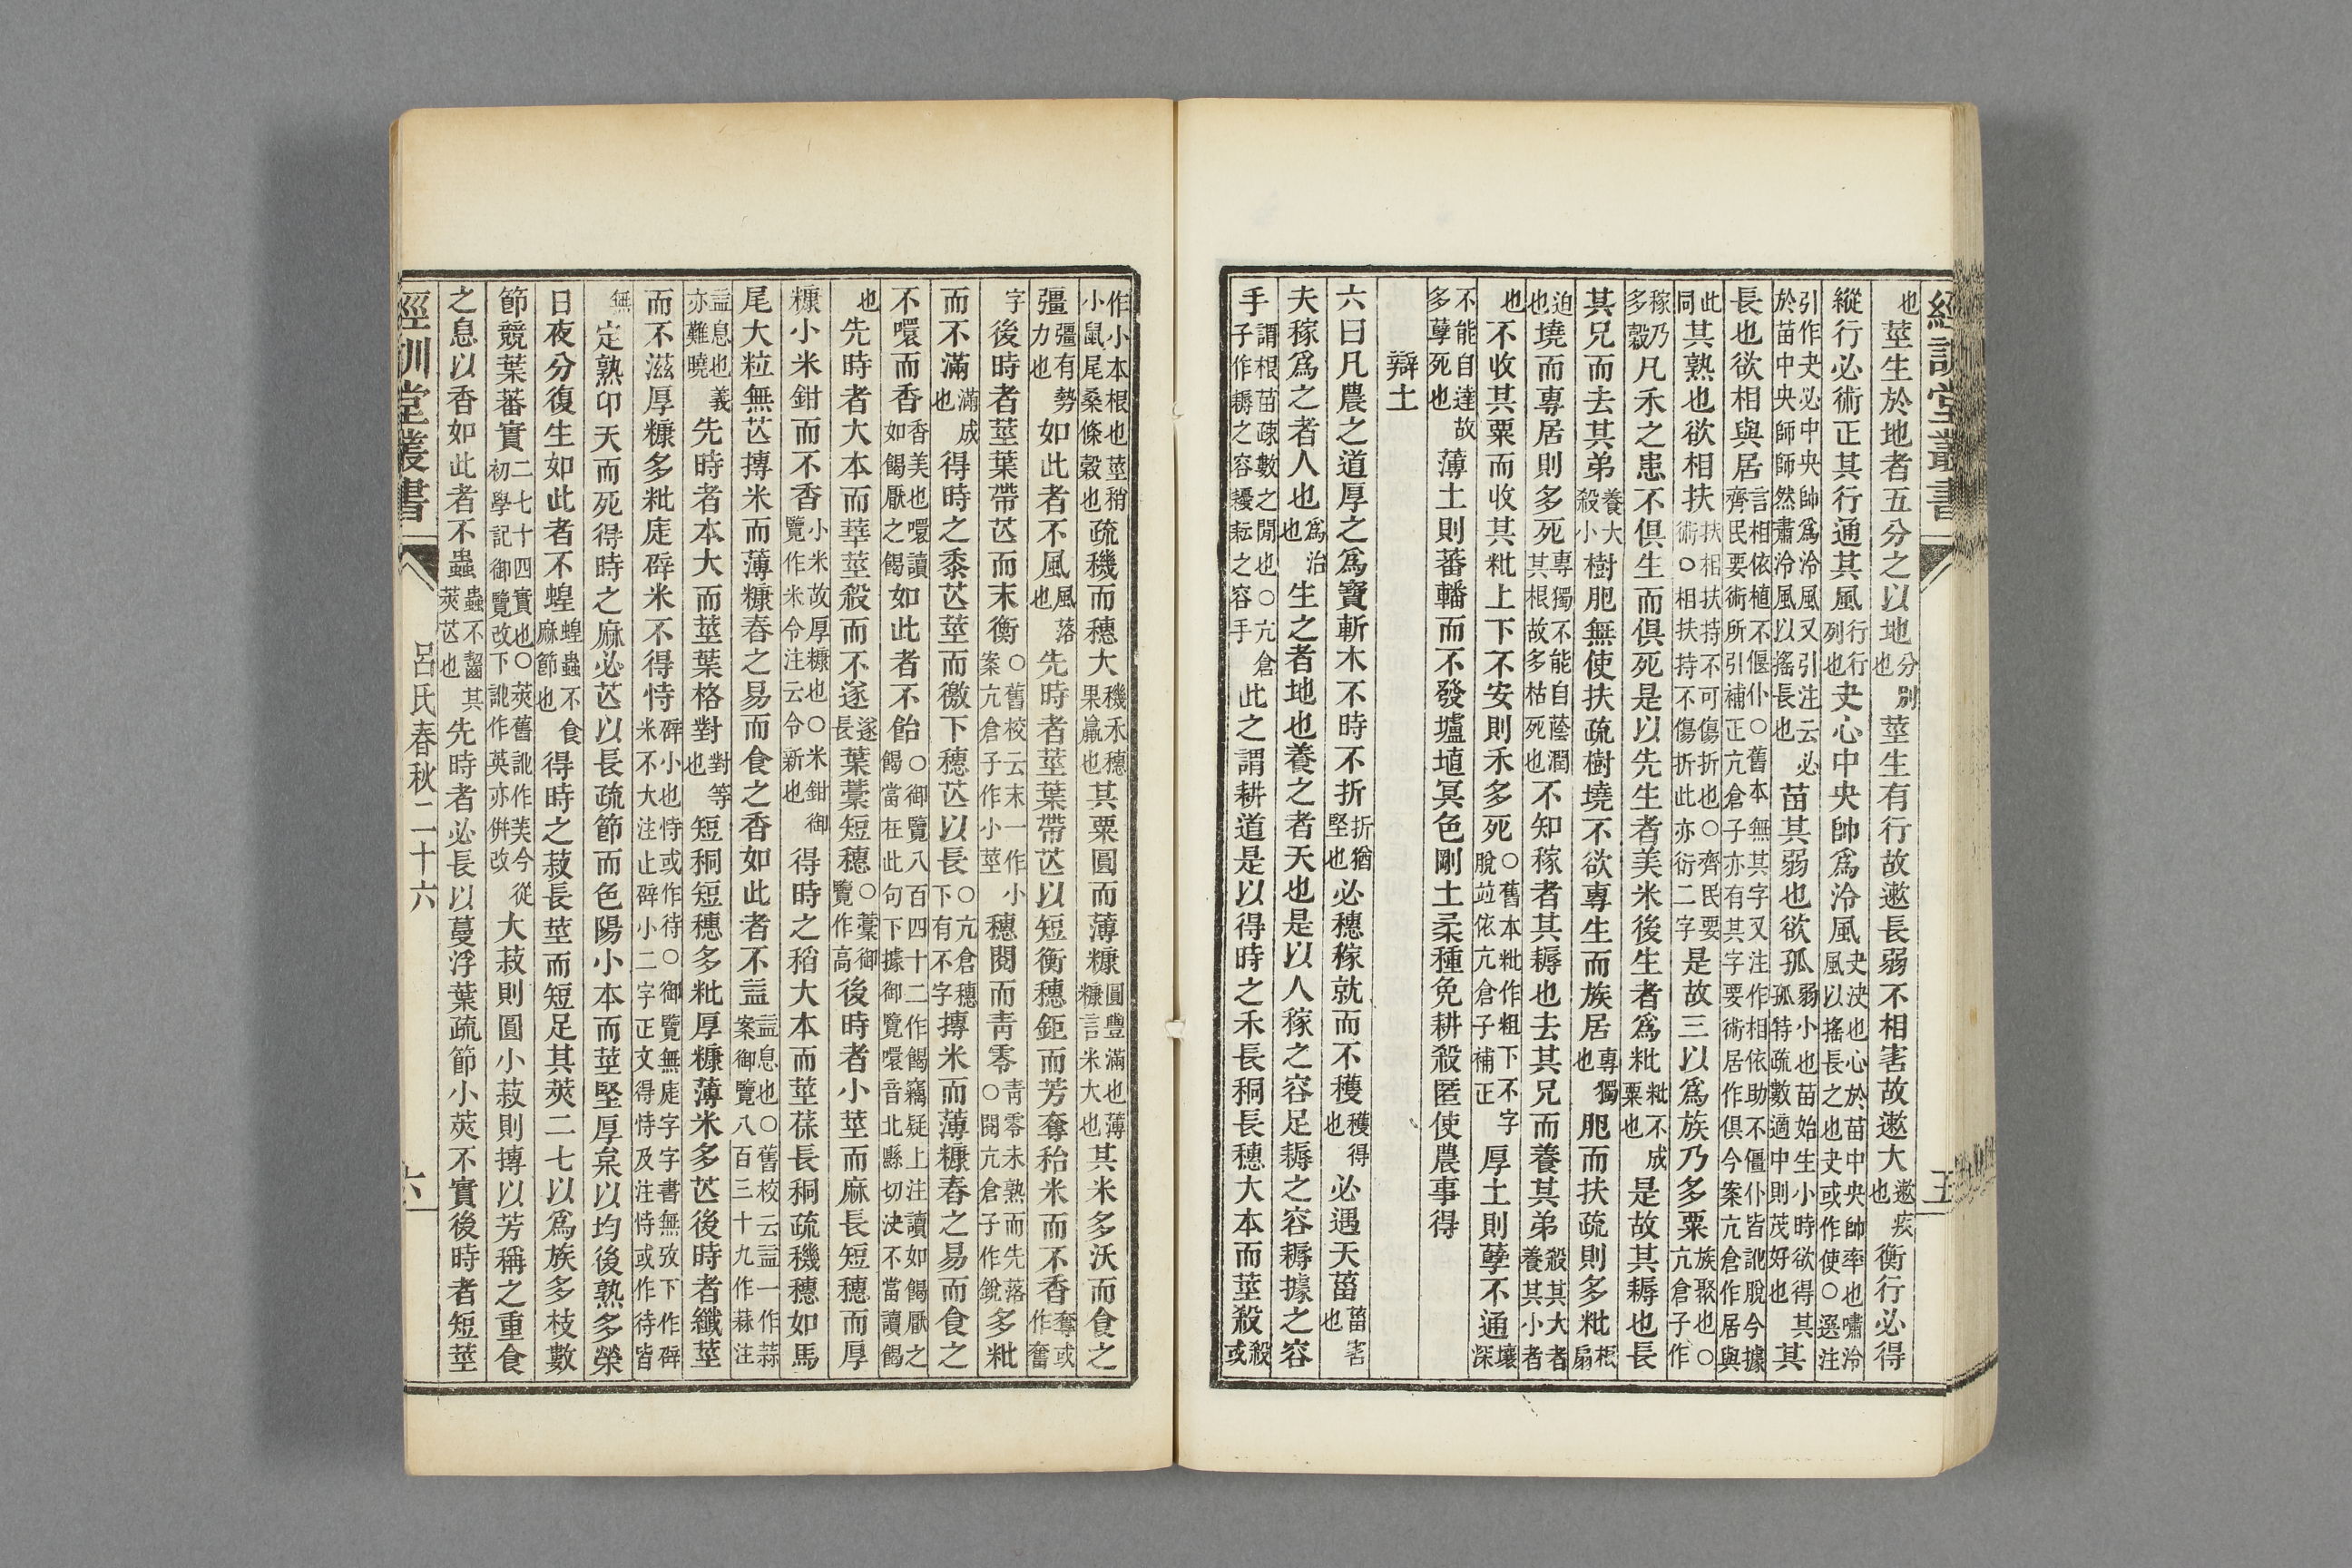 經訓堂叢書 五
也莖生於地者五分之以地分別也莖生有行故遬長弱不相害故遬大遬疾也衡行必得
縱行必術正其行通其風行行列也夬心中央帥爲泠風夬決也心於苗中央帥率也嘯泠風以搖長之也夬或作使○選注
引作夬必中央帥爲泠風又引注云必於苗中央師師然肅泠風以搖長也苗其弱也欲孤弱小也苗始生小時欲得其孤特疏數適中則茂好也其
長也欲相與居言相依植不偃仆○舊本無其字又注作相依助不僵仆皆訛脫今據齊民要術所引補正亢倉子亦有其字要術居作俱今案亢倉作居與
此同其熟也欲相扶扶相扶持不可傷折也○齊民要術○相扶持不傷折此亦衍二字是故三以爲族乃多粟族聚也○亢倉子作
稼乃多穀凡禾之患不俱生而俱死是以先生者美米後生者爲粃粃不成粟也是故其耨也長
其兄而去其弟養大殺小樹肥無使扶疏樹墝不欲專生而族居專獨也肥而扶疏則多粃根扇
迫也墝而專居則多死專獨不能自蔭潤其根故多枯死也不知稼者其耨也去其兄而養其弟殺其大者養其小者
也不收其粟而收其粃上下不安則禾多死○舊本粃作粗下不字脫竝依亢倉子補正厚土則孽不通壤深
不能自達故多孽死也薄土則蕃轓而不發壚埴冥色剛土柔種免耕殺匿使農事得
辯土
六曰凡農之道厚之爲寶斬木不時不折折猶堅也必穗稼就而不穫穫得也必遇天菑菑害也
夫稼爲之者人也爲治也生之者地也養之者天也是以人稼之容足耨之容耨據之容
手謂根苗疎數之閒也○亢倉子作耨之容耰耘之容手此之謂耕道是以得時之禾長秱長穗大本而莖殺殺或
作小本根也莖稍小鼠尾桑條穀也疏穖而穗大穖禾穗果羸也其粟圓而薄糠圓豐滿也薄糠言米大也其米多沃而食之
彊彊有勢力也如此者不風風落也先時者莖葉帶芒以短衡穗鉅而芳奪秮米而不香奪或作奮
字後時者莖葉帶芒而末衡○舊校云末一作小案亢倉子作小莖穗閱而青零青零未熟而先落○閱亢倉子作銳多粃
而不滿滿成也得時之黍芒莖而徼下穗芒以長○亢倉穗下有不字摶米而薄糠舂之易而食之
不噮而香香美也噮讀如餲厭之餲如此者不飴○御覽八百四十二作餲竊疑上注讀如餲厭之餲當在此句下據御覽噮音北縣切決不當讀餲
也先時者大本而華莖殺而不遂遂長葉藁短穗○藁御覽作高後時者小莖而麻長短穗而厚
糠小米鉗而不香小米故厚糠也○米鉗御覽作米令注云令新也得時之稻大本而莖葆長秱疏穖穗如馬
尾大粒無芒摶米而薄糠舂之易而食之香如此者不益益息也○舊校云益一作蒜案御覽八百三十九作蒜注
益息也義亦難曉先時者本大而莖葉格對對等也短秱短穗多粃厚糠薄米多芒後時者纖莖
而不滋厚糠多粃庢辟米不得恃辟小也恃或作待○御覽無庢字字書無攷下作辟米不大注止辟小二字正文得恃及注恃或作待皆
無定熟卬天而死得時之麻必芒以長疏節而色陽小本而莖堅厚枲以均後熟多榮
日夜分復生如此者不蝗蝗蟲不食麻節也得時之菽長莖而短足其莢二七以爲族多枝數
節競葉蕃實二七十四實也○莢舊訛作英今從初學記御覽改下訛作英亦併改大菽則圓小菽則摶以芳稱之重食
之息以香如此者不蟲蟲不齧其莢芒也先時者必長以蔓浮葉疏節小莢不實後時者短莖
經訓堂叢書 呂氏春秋二十六 六